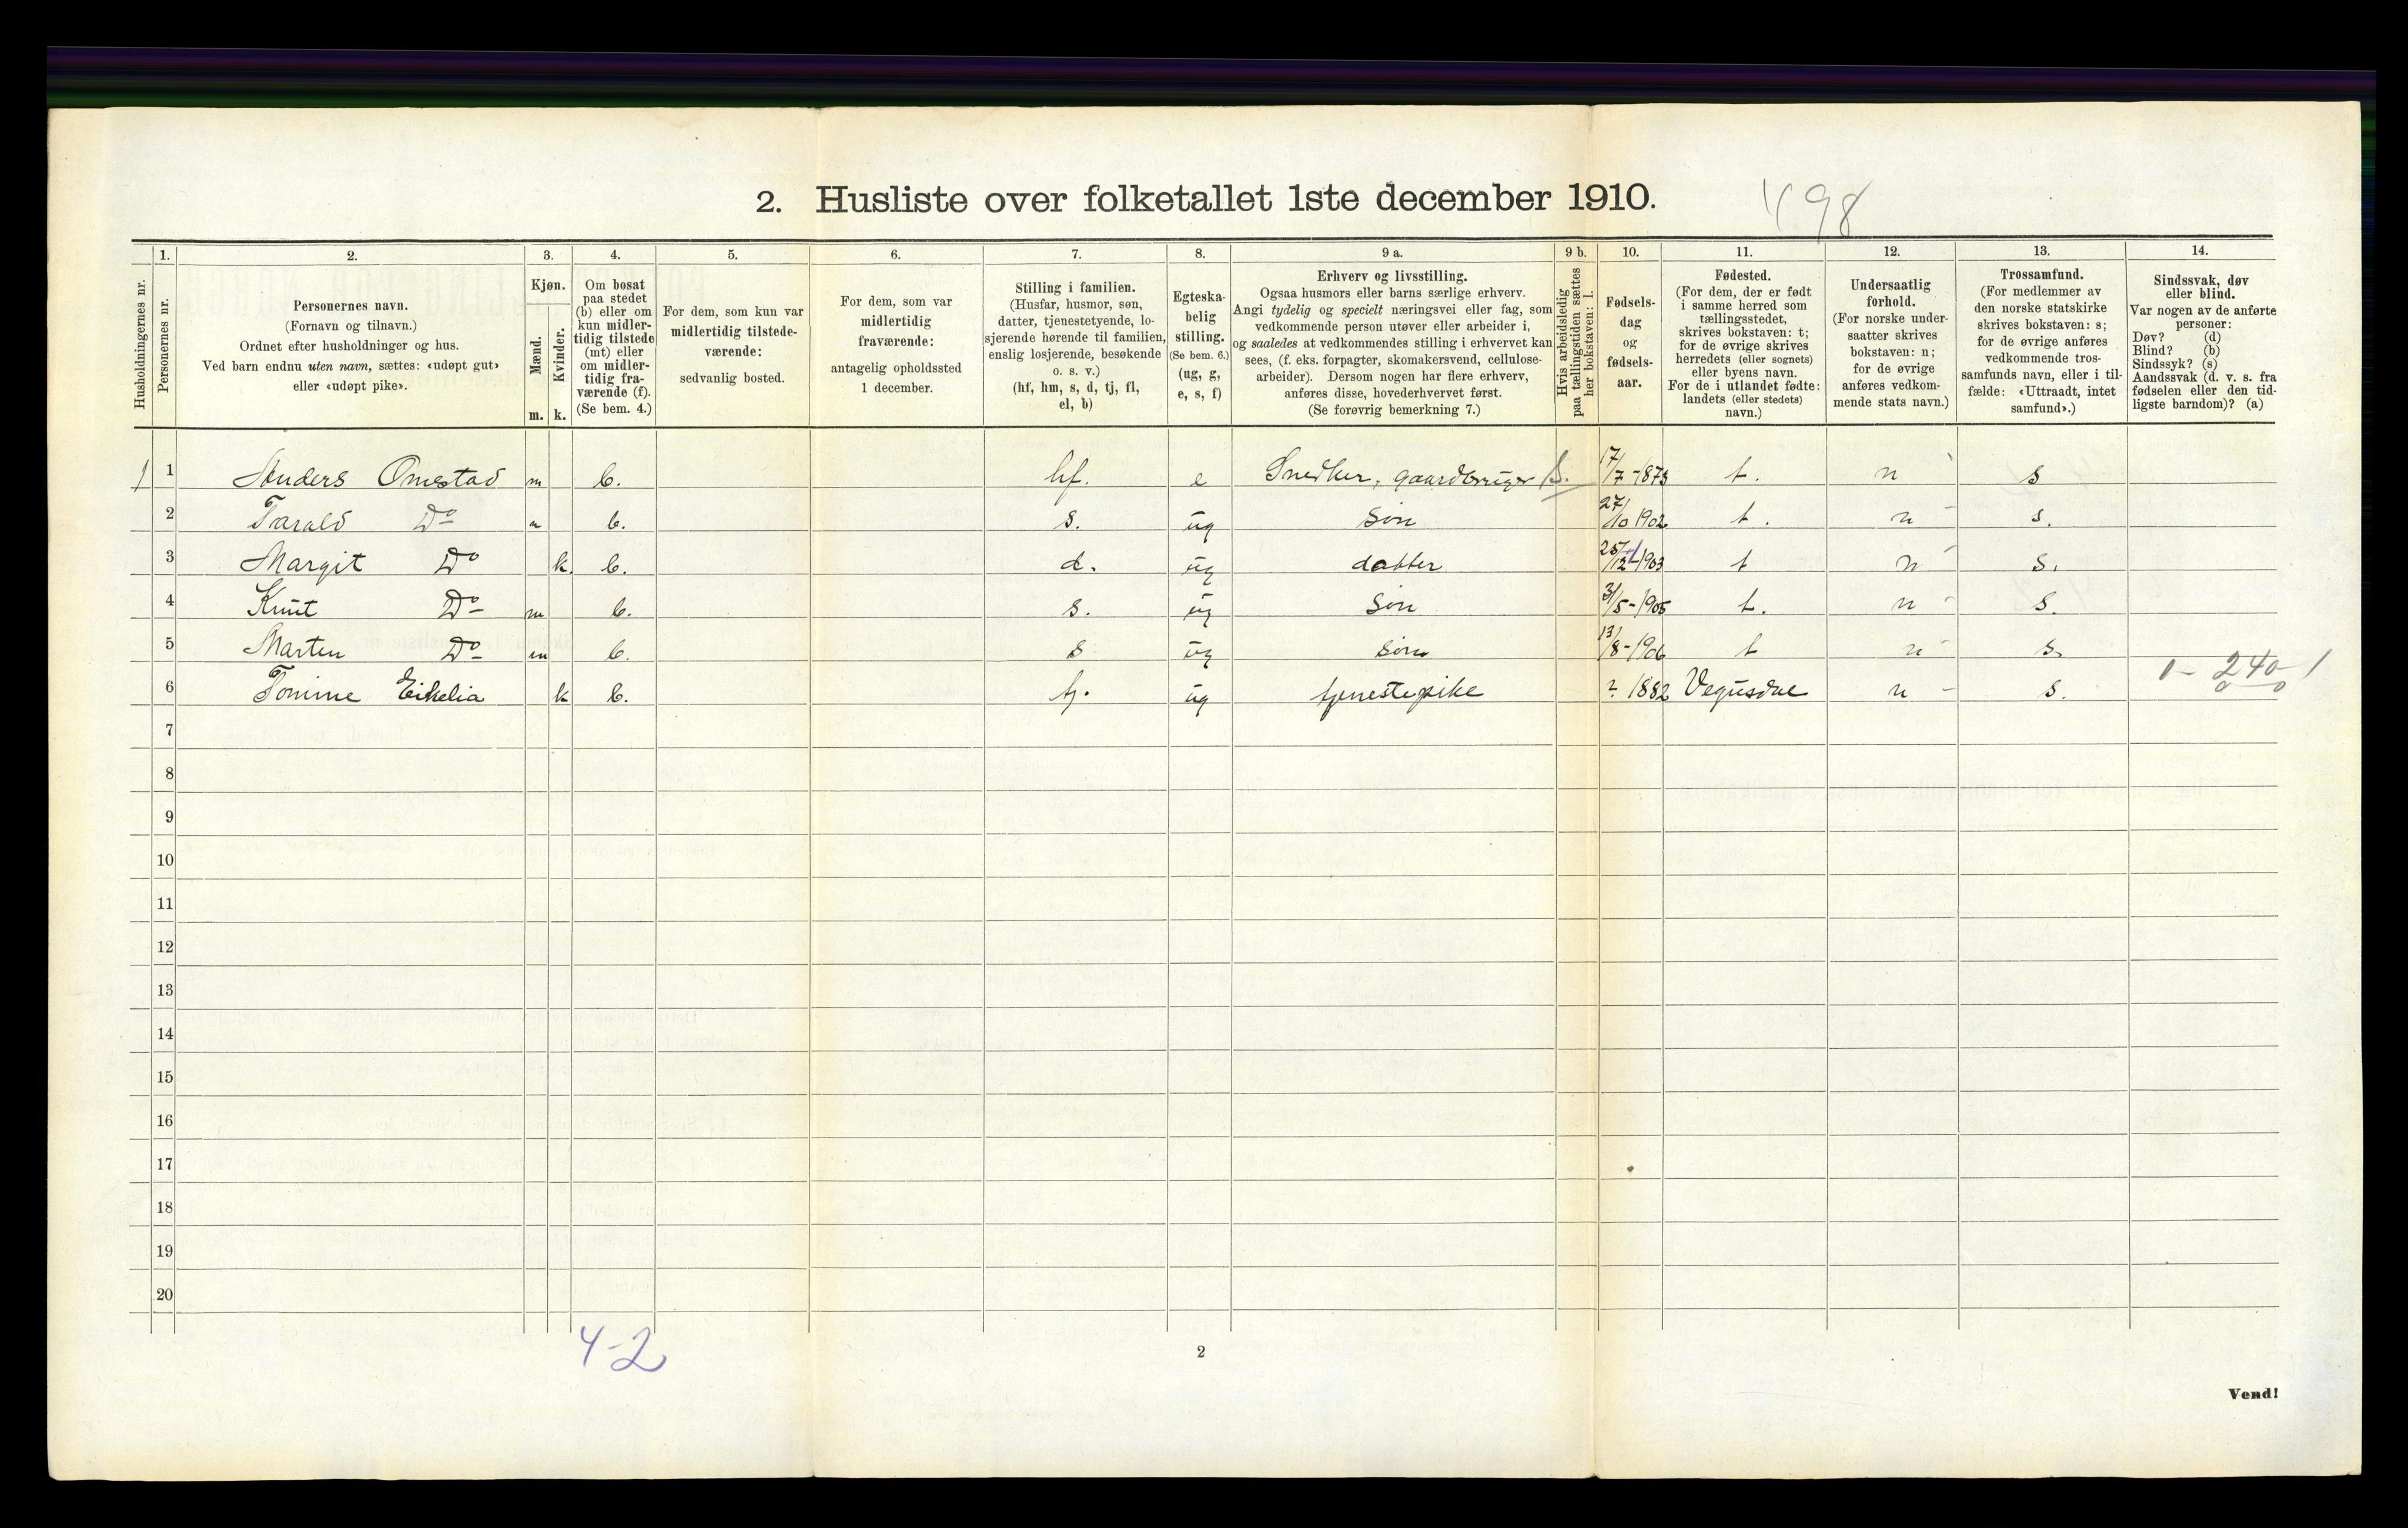 2. Husliste over folketallet 1ste december 1910.
498
Husholdningernes nr.
1.
Personernes nr.
2.
Personernes navn.
(Fornavn og tilnavn.)
Ordnet efter husholdninger og hus.
Ved barn endnu uten navn, sættes: «udøpt gut»
eller «udøpt pike».
3.
Kjøn.
Mænd.
m.
Kvinder.
k.
4.
Om bosat
paa stedet
(b) eller om
kun midler-
tidig tilstede
(mt) eller
om midler-
tidig fra-
værende (f).
(Se bem. 4.)
5.
For dem, som kun var
midlertidig tilstede-
værende:
sedvanlig bosted.
6.
For dem, som var
midlertidig
fraværende:
antagelig opholdssted
1 december.
7.
Stilling i familien.
(Husfar, husmor, søn,
datter, tjenestetyende, lo-
sjerende hørende til familien,
enslig losjerende, besøkende
o. s. v.)
(hf, hm, s, d, tj, fl,
el, b)
8.
Egteska-
belig
stilling.
(Se bem. 6.)
(ug, g,
e, s, f)
9 a.
Erhverv og livsstilling.
Ogsaa husmors eller barns særlige erhverv.
Angi tydelig og specielt næringsvei eller fag, som
vedkommende person utøver eller arbeider i,
og saaledes at vedkommendes stilling i erhvervet kan
sees, (f. eks. forpagter, skomakersvend, cellulose-
arbeider). Dersom nogen har flere erhverv,
anføres disse, hovederhvervet først.
(Se forøvrig bemerkning 7.)
9 b.
Hvis arbeidsledig
paa tællingstiden sættes
her bokstaven: l.
10.
Fødsels-
dag
og
fødsels-
aar.
11.
Fødested.
(For dem, der er født
i samme herred som
tællingsstedet,
skrives bokstaven: t;
for de øvrige skrives
herredets (eller sognets)
eller byens navn.
For de i utlandet fødte:
landets (eller stedets)
navn.)
12.
Undersaatlig
forhold.
(For norske under-
saatter skrives
bokstaven: n;
for de øvrige
anføres vedkom-
mende stats navn.)
13.
Trossamfund.
(For medlemmer av
den norske statskirke
skrives bokstaven: s;
for de øvrige anføres
vedkommende tros-
samfunds navn, eller i til-
fælde: «Uttraadt, intet
samfund».)
14.
Sindssvak, døv
eller blind.
Var nogen av de anførte
personer:
Døv? (d)
Blind? (b)
Sindssyk? (s)
Aandssvak (d. v. s. fra
fødselen eller den tid-
ligste barndom)? (a)
1 1 Anders Omestad m b. hf. e Snedker, gaardbruger S. 17/7-1873 t. n s
2 Tarald Do m b. s. ug søn 27/10 1902 t. n s.
3 Margit Do k. b. d. ug datter 25/12-1903 t n s.
4 Knut Do m b. s. ug søn 3/5-1905 t. n s.
5 Marten Do m b. s ug søn 13/8-1906 t n s.
6 Tomine Eikelia k b. tj. ug tjenestepike ? 1882 Vegusdal n s. 0-240-1
7
8
9
10
11
12
13
14
15
16
17
18
19
20
4-2
2
Vend!